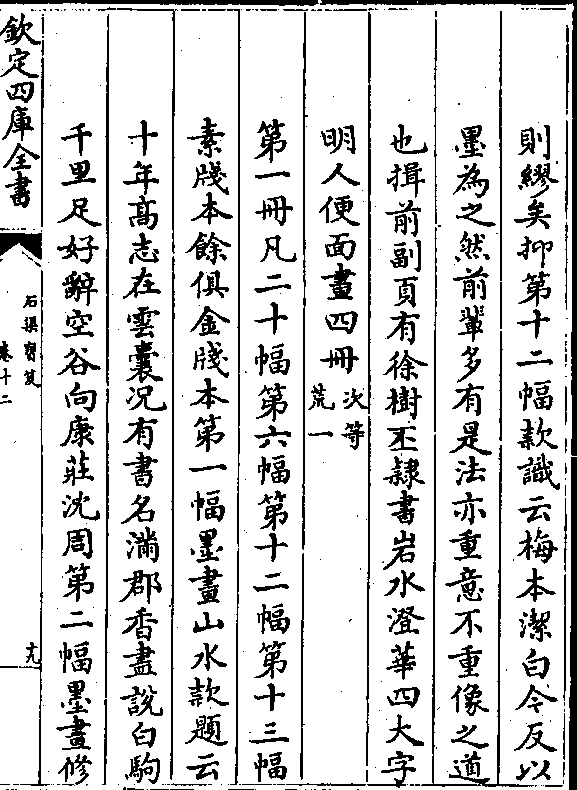 則繆矣抑第十二幅款識云梅本潔白今反以
墨為之然前輩多有是法亦重意不重像之道
也揖前副頁有徐樹丕隷書岩水澄華四大字
明人便面畫四冊次等荒一
第一冊凡二十幅第六幅第十二幅第十三幅
素牋本餘俱金牋本第一幅墨畫山水款題云
十年髙志在雲囊况有書名滿郡香盡說白駒
千里足好辭空谷向康莊沈周第二幅墨畫修
欽定四庫全書
石渠寶笈
卷十二
十九